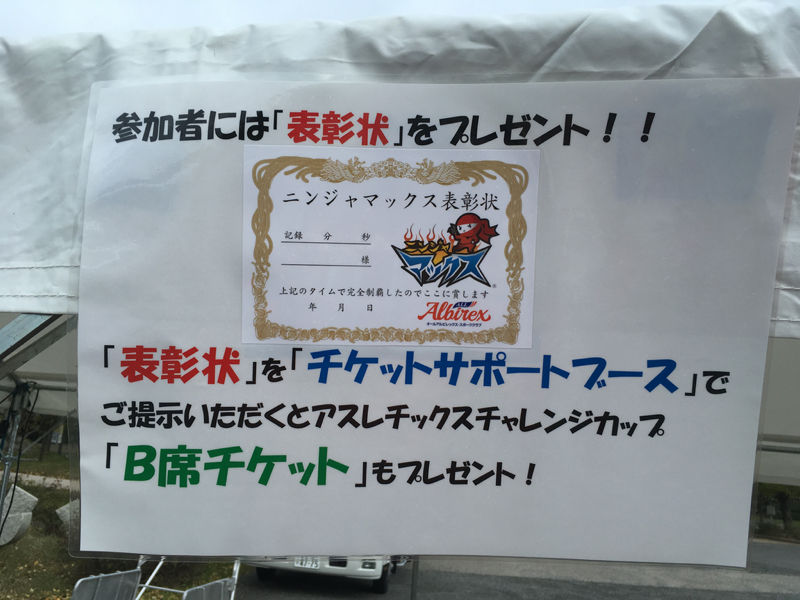 参加者には「表彰状」をプレゼント！！
ニンジャマックス表彰状
記録　分　秒
様
ニンジャ
マックス
上記のタイムで完全制覇したのでここに賞します
年　月　日
ALL
Albirex
オールアルビレックス・スポーツクラブ
「表彰状」を「チケットサポートブース」で
ご提示いただくとアスレチックスチャレンジカップ
「B席チケット」もプレゼント！